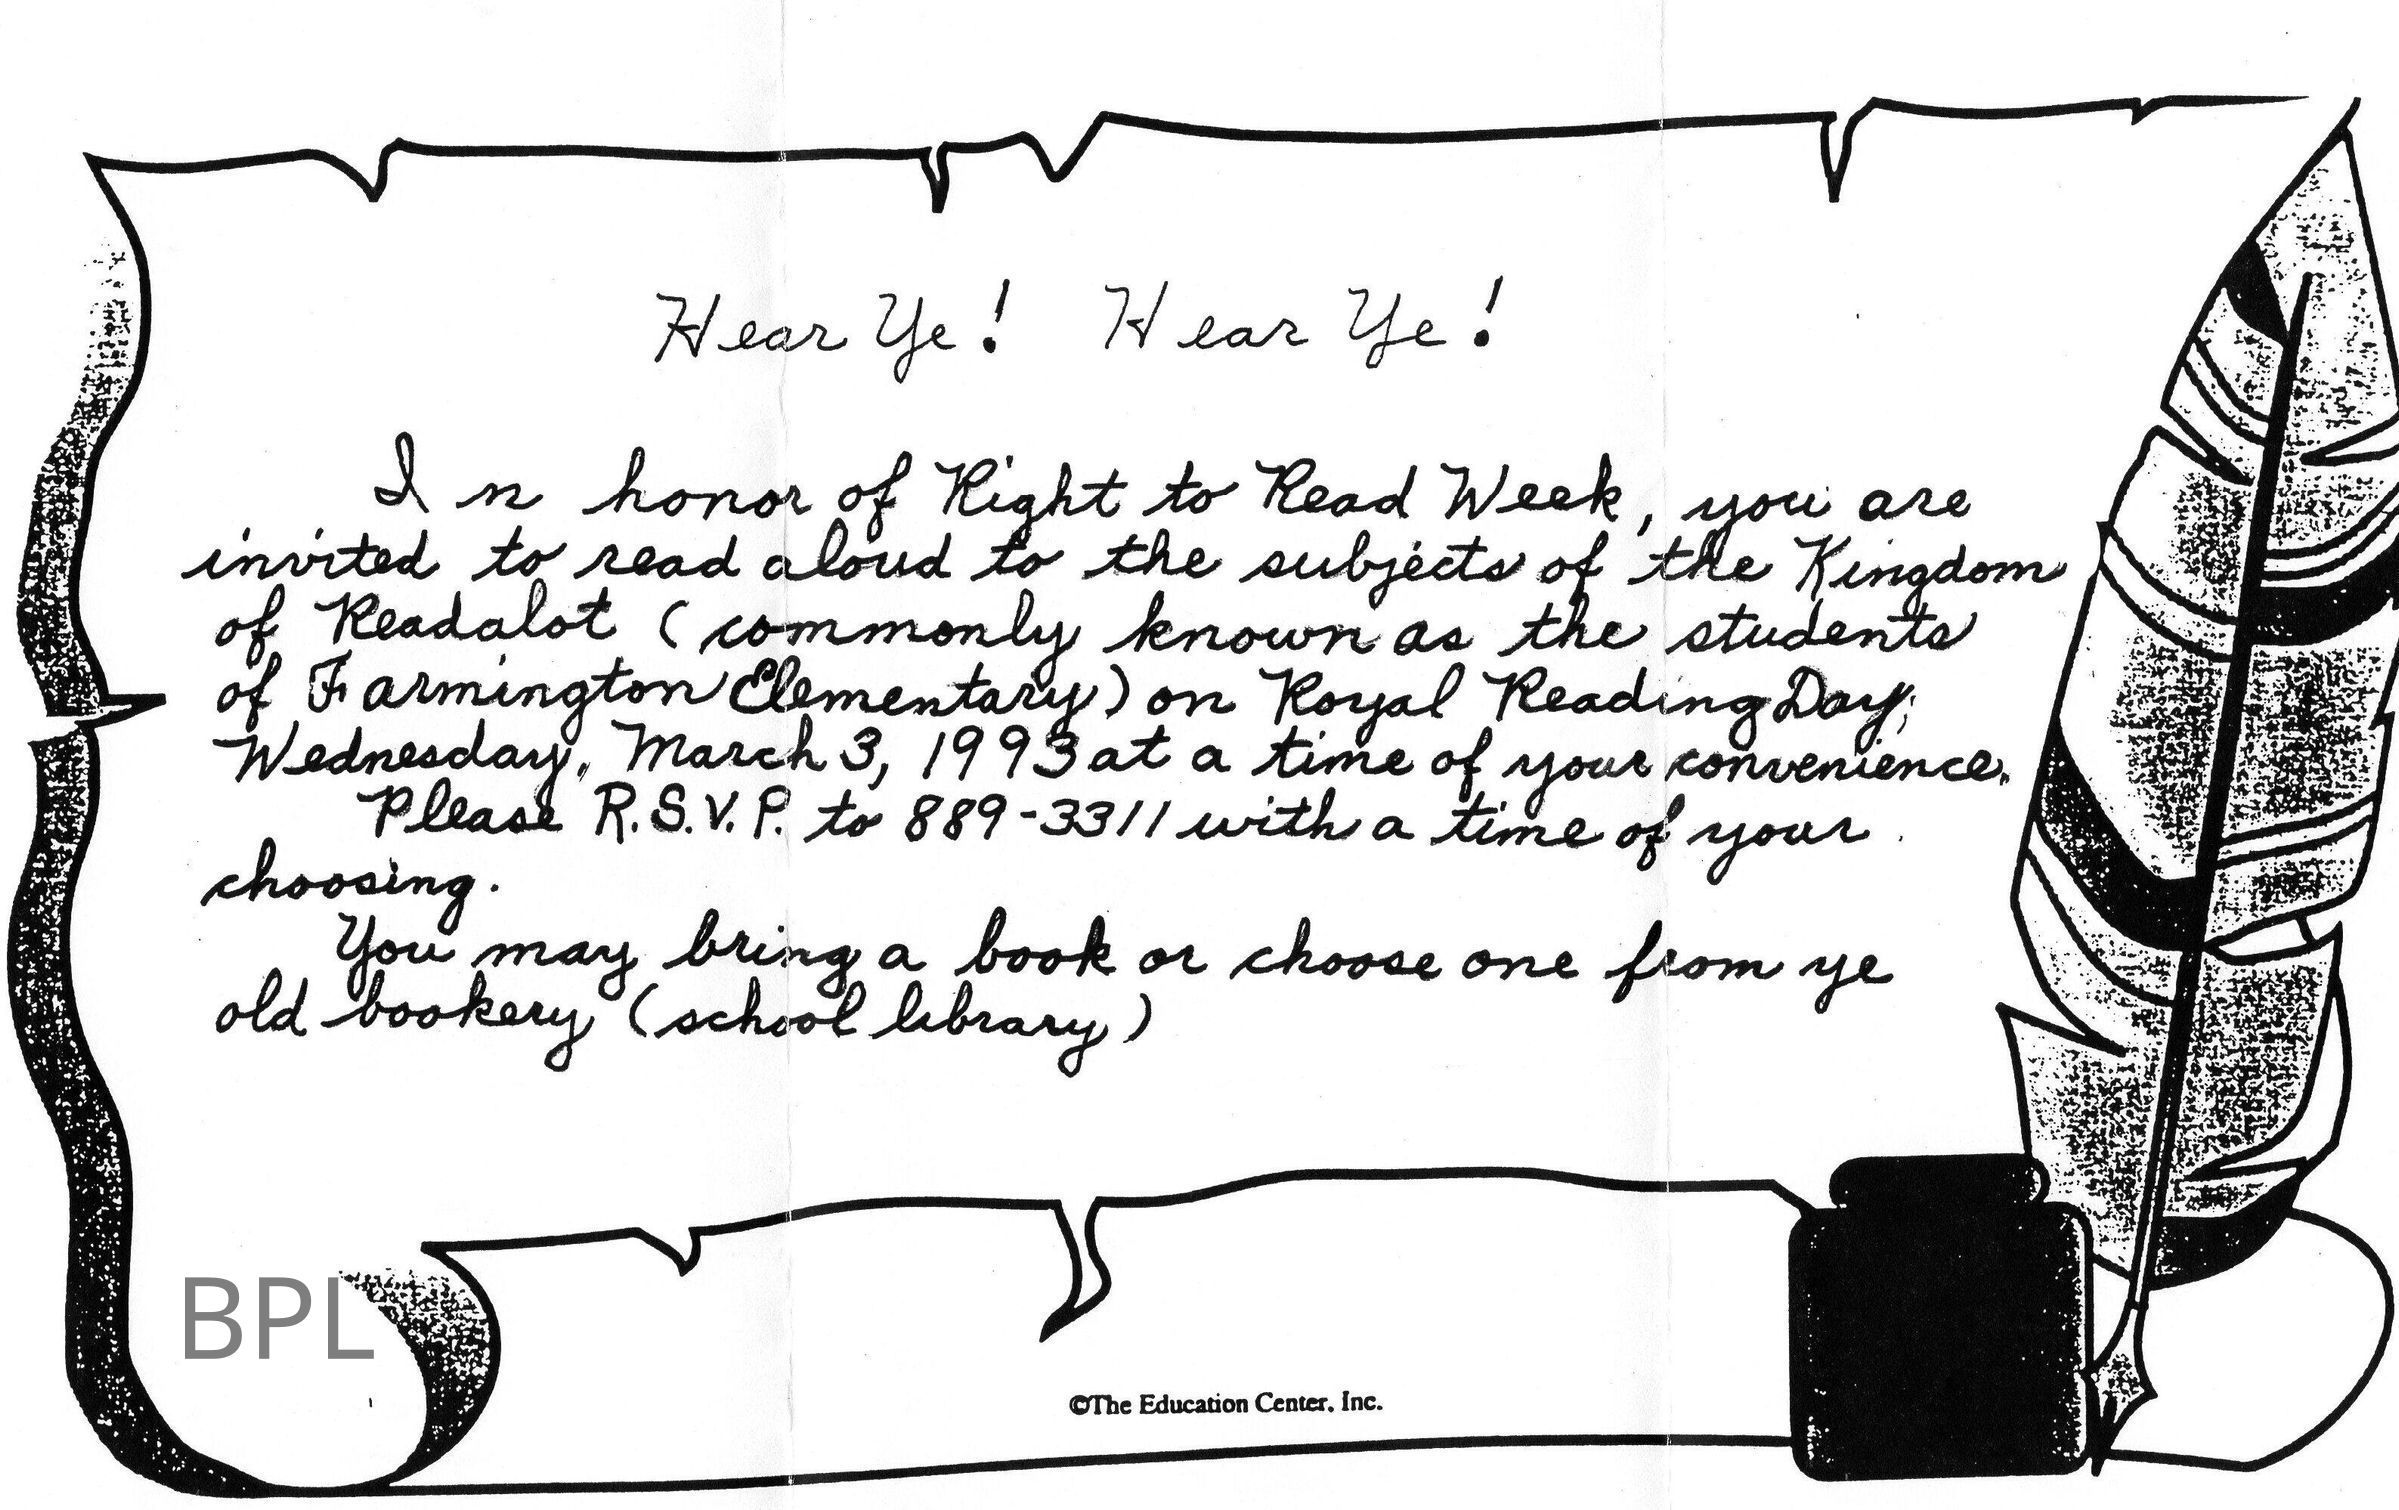 Hear Ye! Hear Ye!
In honor of Right to Read Week, you are
invited to read aloud to the subjects of the Kingdom
of Readalot (commonly known as the students
of Farmington Elementary) on Royal Reading Day,
Wednesday, March 3, 1993 at a time of your convenience.
Please R.S.V.P. to 889-3311 with a time of your
choosing.
You may bring a book or choose one from ye
old bookery (school library)
BPL
©The Education Center, Inc.